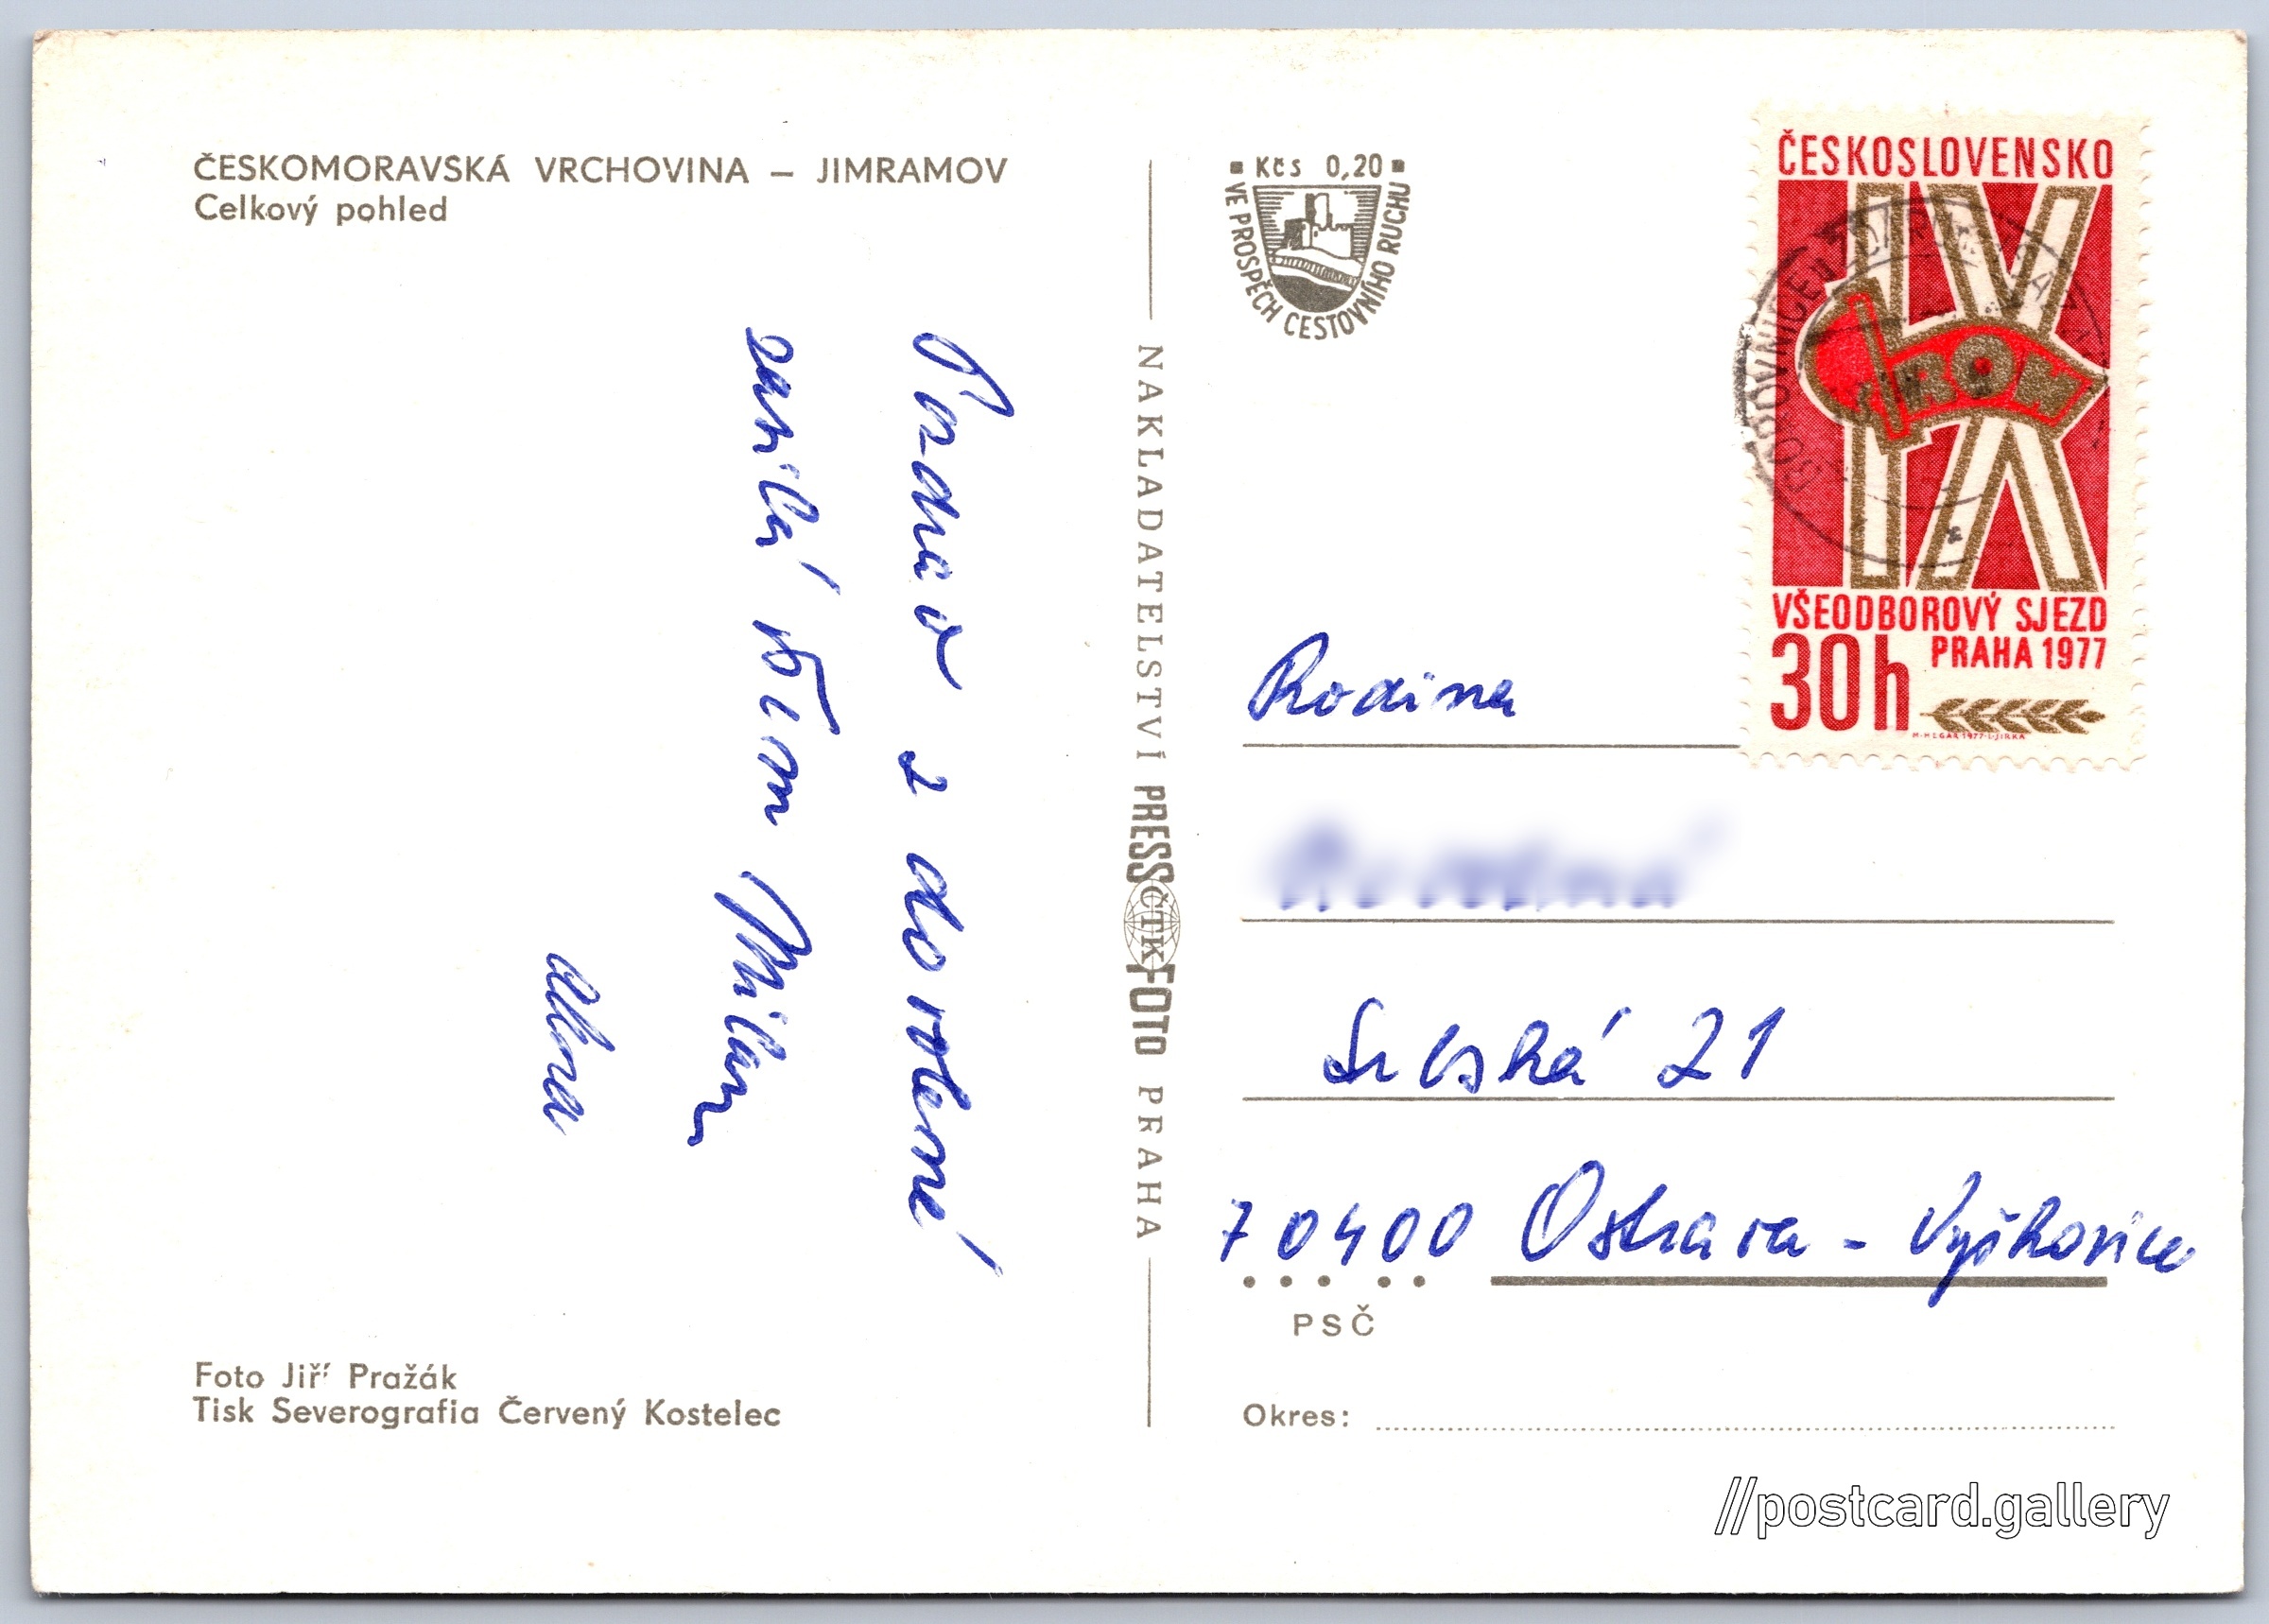 ČESKOMORAVSKÁ VRCHOVINA – JIMRAMOV
Celkový pohled
Pozdrav z dovolené
zasílá Vám Milan
Alena
Foto Jiří Pražák
Tisk Severografia Červený Kostelec
NAKLADATELSTVÍ PRESSFOTO PRAHA
ČTK
Kčs 0,20
VE PROSPĚCH CESTOVNÍHO RUCHU
ČESKOSLOVENSKO
IX
ROH
VŠEODBOROVÝ SJEZD
PRAHA 1977
30h
M. HEGAR 1977 J. JIRKA
Rodina
Srbská 21
70400 Ostrava - Vyškovice
PSČ
Okres:
//postcard.gallery